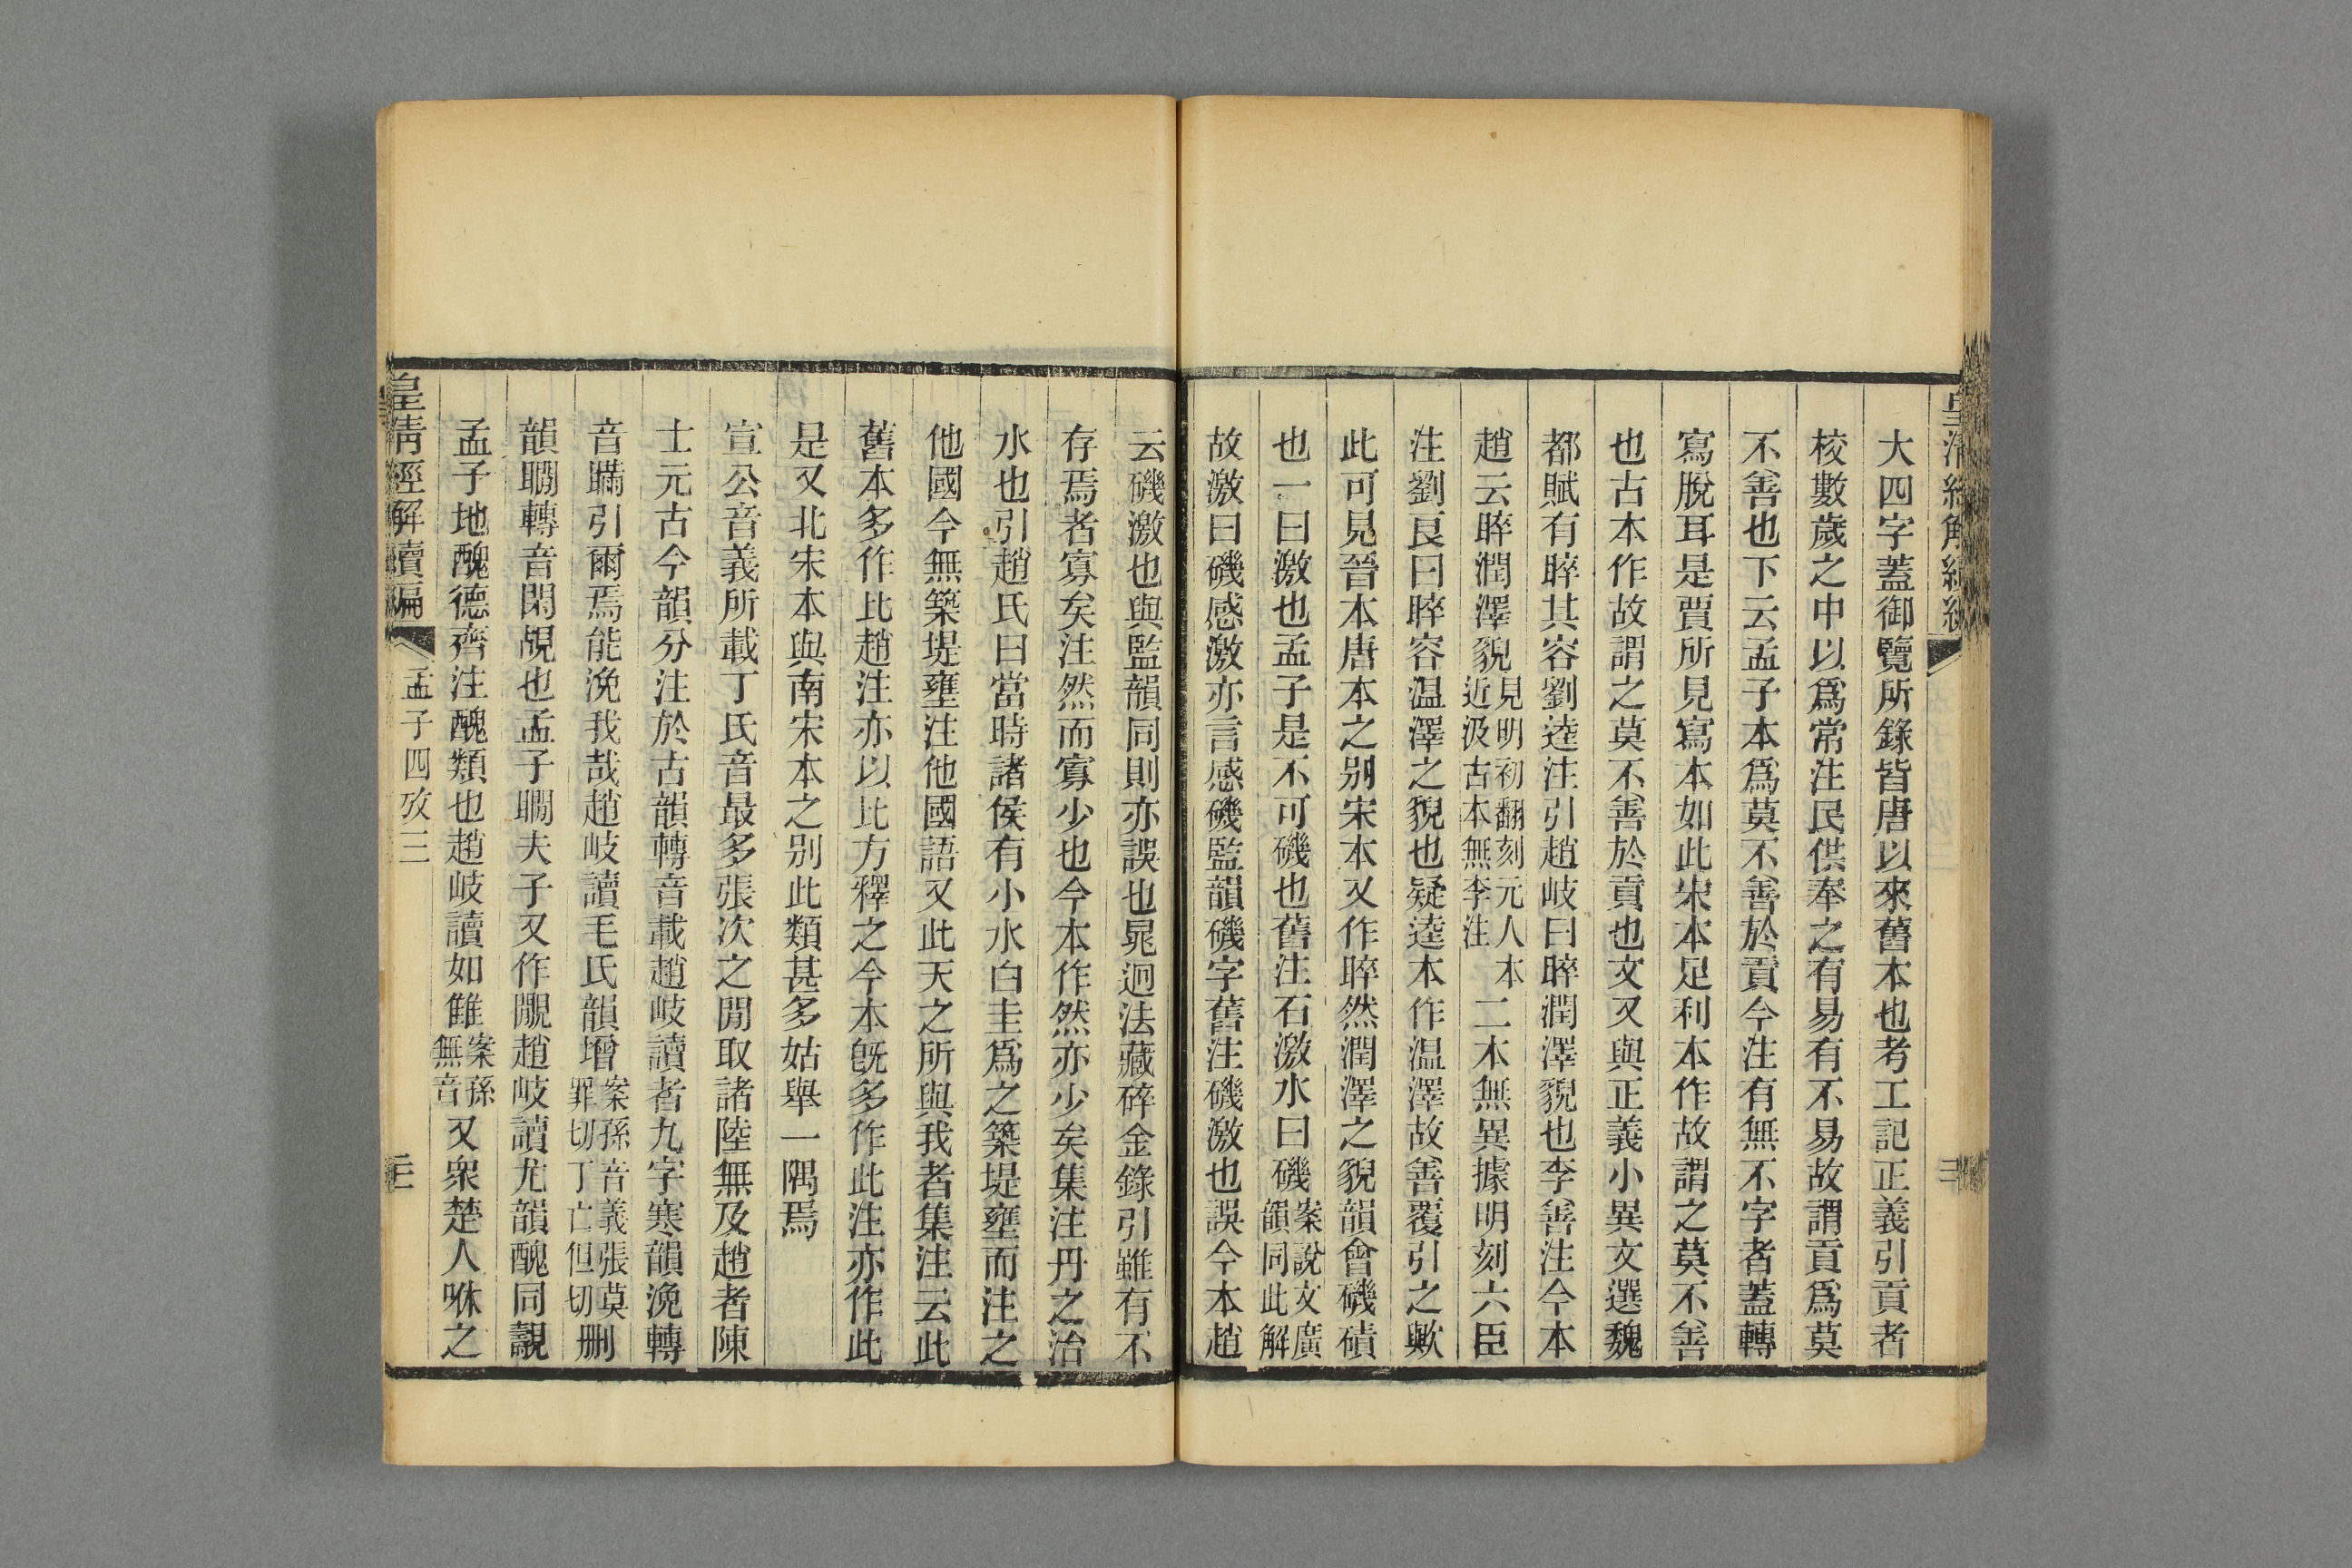 大四字蓋御覽所錄皆唐以來舊本也考工記正義引貢者
校數歲之中以爲常注民供奉之有易有不易故謂貢爲莫
不善也下云孟子本爲莫不善於貢今注有無不字者蓋轉
寫脫耳是賈所見寫本如此宋本足利本作故謂之莫不善
也古本作故謂之莫不善於貢也文又與正義小異文選魏
都賦有睟其容劉逵注引趙岐曰睟潤澤貌也李善注今本
趙云睟潤澤貌見明初翻刻元人本近汲古本無李注二本無異據明刻六臣
注劉良曰睟容温澤之貌也疑逵本作温澤故善覆引之歟
此可見晉本唐本之別宋本又作睟然潤澤之貌韻會磯磧
也一曰激也孟子是不可磯也舊注石激水曰磯案說文廣韻同此解
故激曰磯感激亦言感磯監韻磯字舊注磯激也誤今本趙
云磯激也與監韻同則亦誤也晁迥法藏碎金錄引雖有不
存焉者寡矣注然而寡少也今本作然亦少矣集注丹之治
水也引趙氏曰當時諸侯有小水白圭爲之築堤壅而注之
他國今無築堤壅注他國語又此天之所與我者集注云此
舊本多作比趙注亦以比方釋之今本旣多作此注亦作此
是又北宋本與南宋本之別此類甚多姑舉一隅焉
宣公音義所載丁氏音最多張次之閒取諸陸無及趙者陳
士元古今韻分注於古韻轉音載趙岐讀者九字寒韻浼轉
音瞞引爾焉能浼我哉趙岐讀毛氏韻增案孫音義張莫罪切丁亡但切刪
韻瞯轉音閑覗也孟子瞯夫子又作覸趙岐讀尤韻醜同䫏
孟子地醜德齊注醜類也趙岐讀如雔案孫無音又衆楚人咻之
皇清經解續編
孟子四攷三